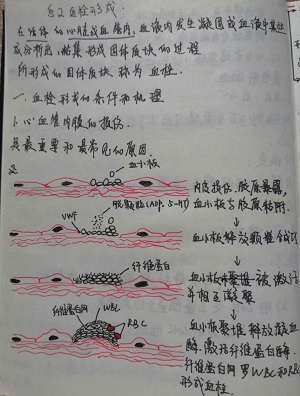 §2 血栓形成.
在活体的心脏或血管内,血液内发生凝固或血液中某些
成分析出、粘集形成固体质块的过程
所形成的固体质块 称为血栓.
一.血栓形成的条件和机理
1.心血管内膜的损伤.
是最重要和最常见的原因.
血小板
内皮损伤,胶原暴露,
血小板与胶原粘附.
脱颗粒(ADP. 5-HT)
VWF
血小板释放颗粒
纤维蛋白
血小板
并相互凝聚
纤维蛋白网
WBC
RBC
血小板 释放凝血
酶.激活纤维蛋白
纤维蛋白网 罗WBC和RBC
形成血栓.